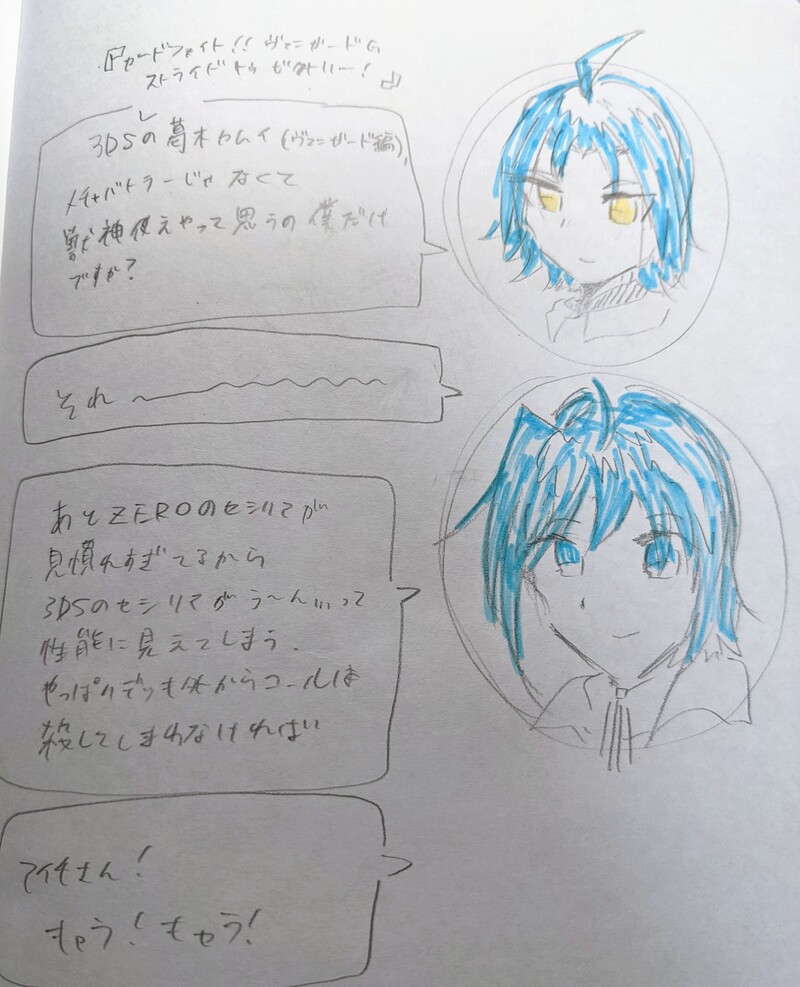 『カードファイト!! ヴァンガードG
ストライドトゥビクトリー!』
3DSの葛木カムイ(ヴァンガード編)、
メチャバトラーじゃなくて
獣神使えやって思うの僕だけ
ですか?
それ〜
あとZEROのセシリアが
見慣れすぎてるから
3DSのセシリアがう〜ん…って
性能に見えてしまう.
やっぱりデッキ外からコールは
殺してしまわなければ
アイチさん!
キャラ!キャラ!